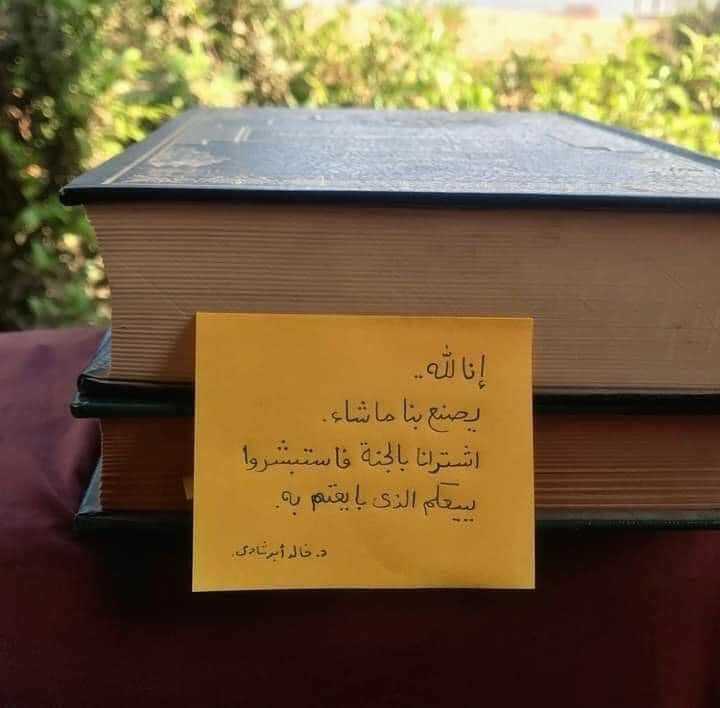 إنا لله..
يصنع بنا ما شاء.
اشترانا بالجنة فاستبشروا
ببيعكم الذى بايعتم به.
د. خالد أبو شادى.